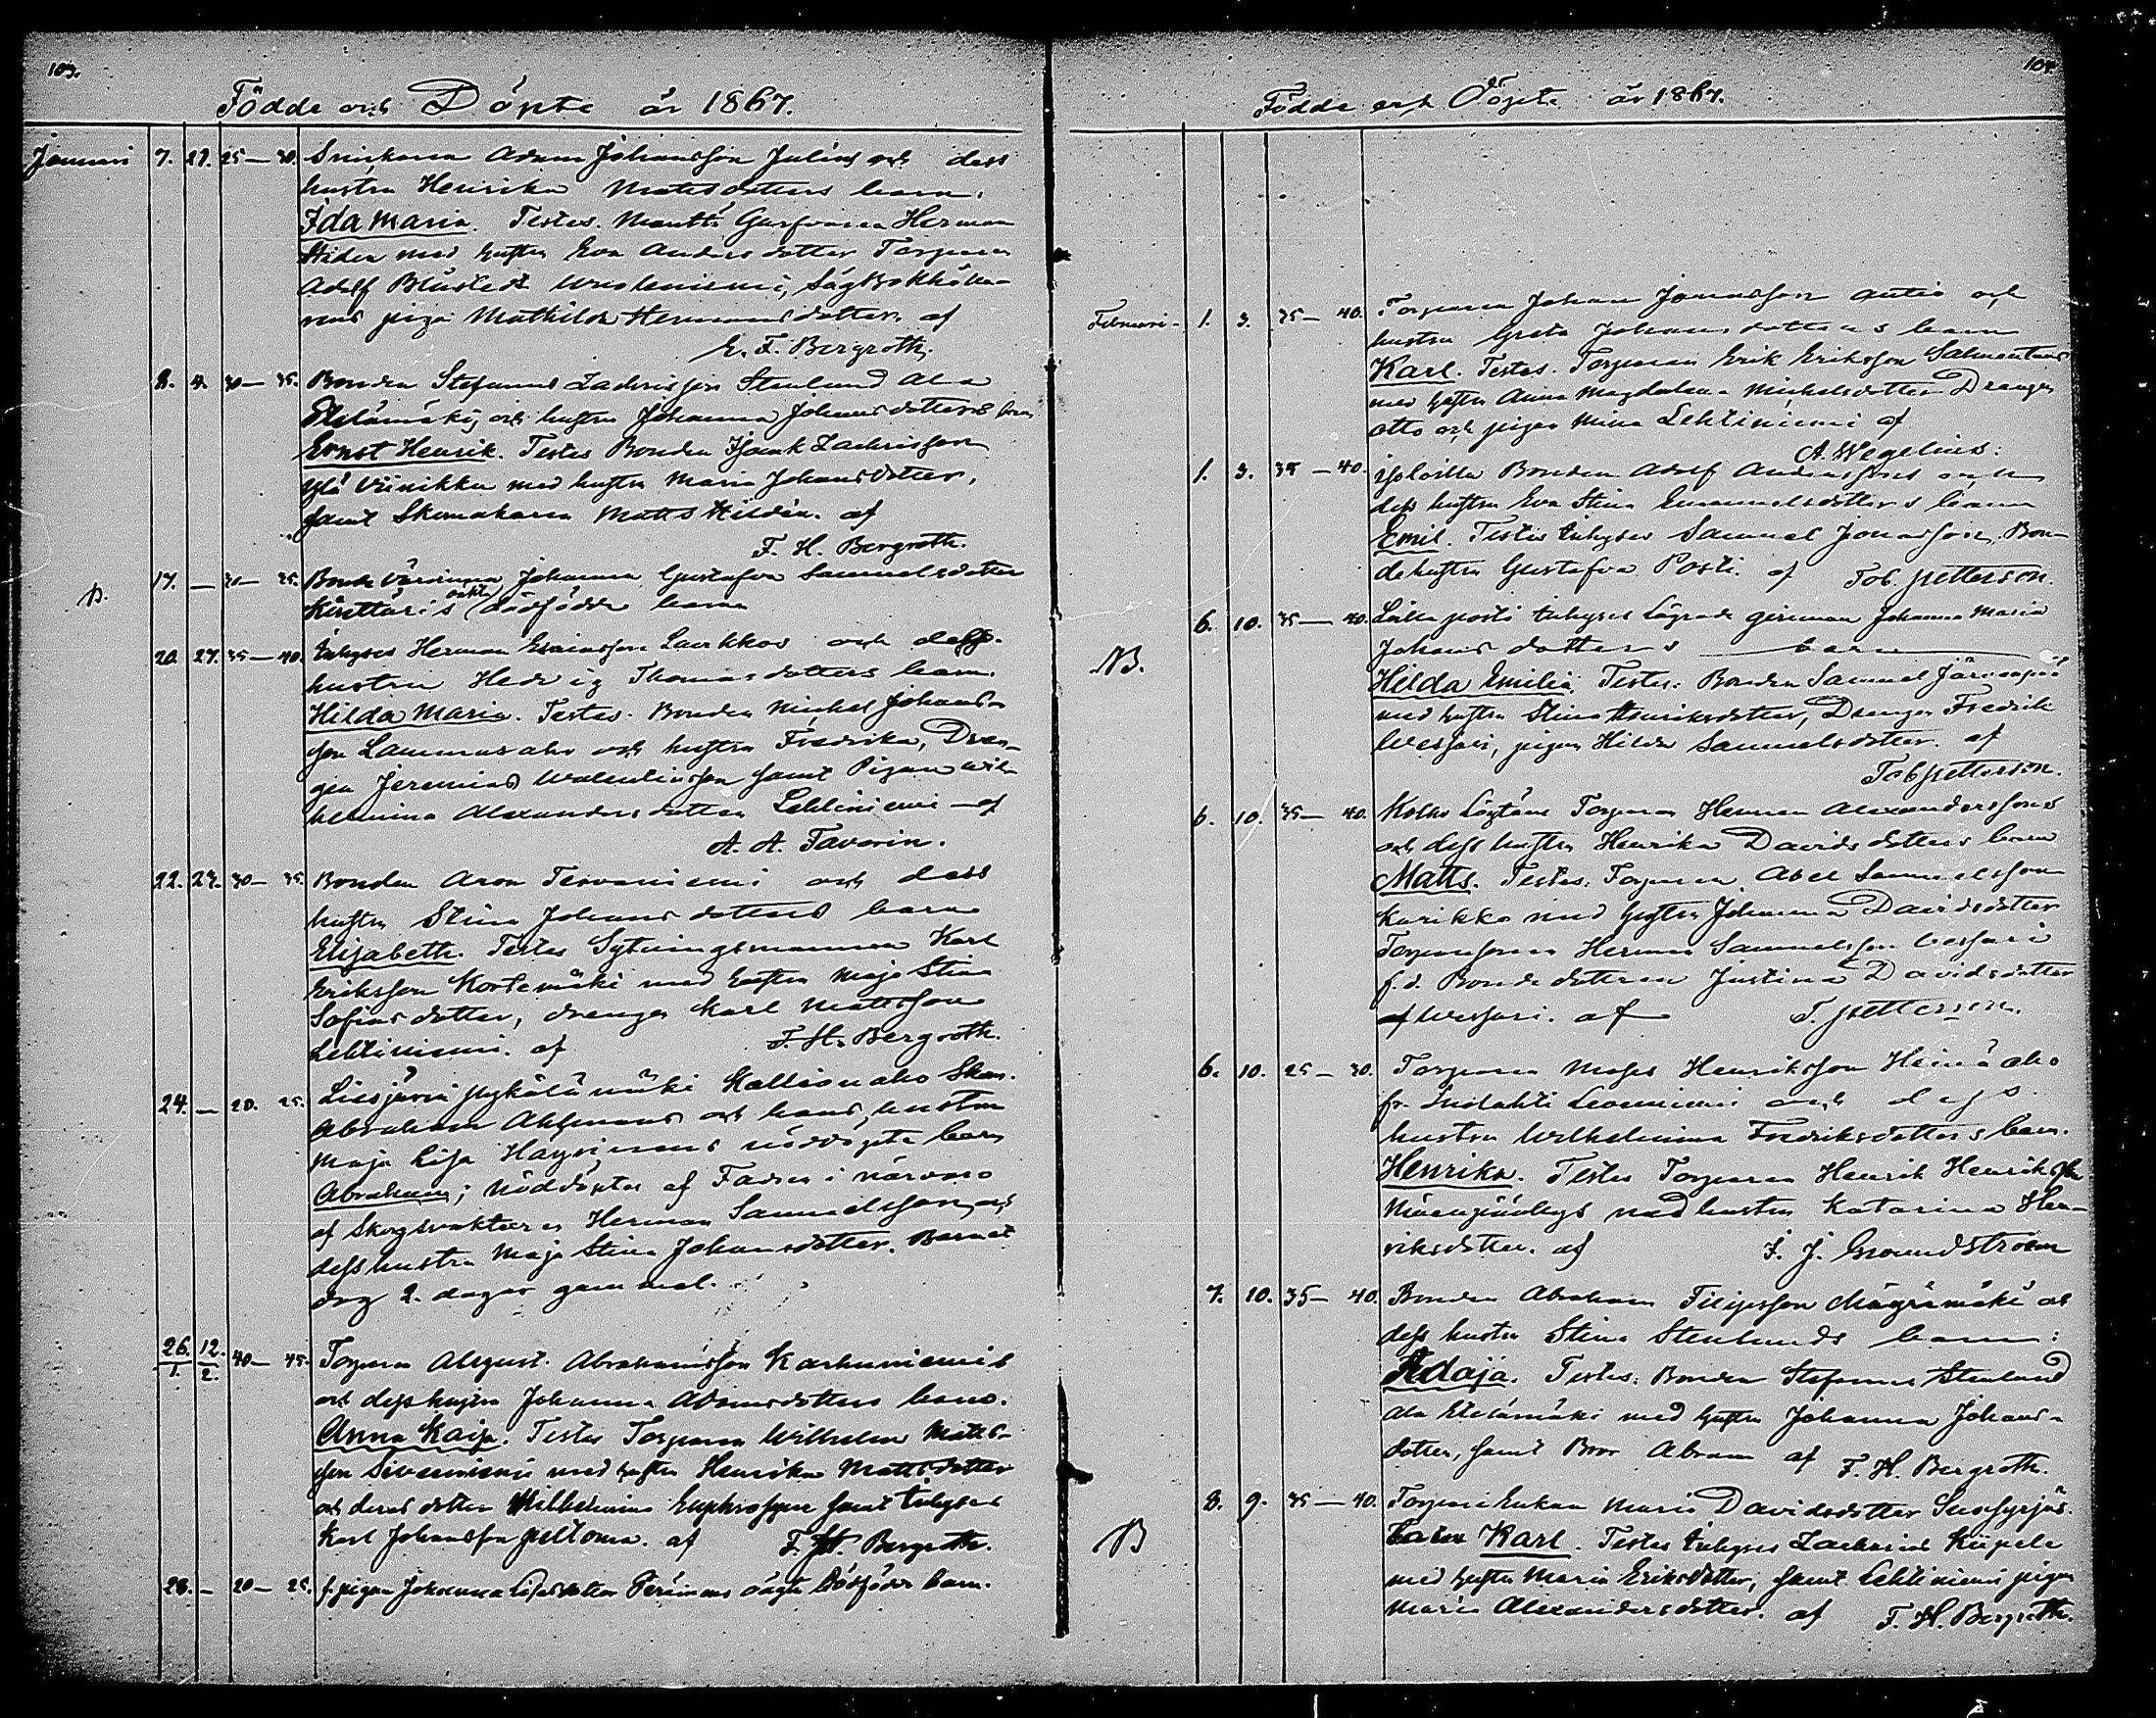 103.
Födde och Döpte år 1867.
Januari 7. 27. 25–30. Snickaren Adam Johansson Julins och dess
hustru Henrika Matsdotters barn.
Ida Maria. Testes. Gurfvaren Herman
Hiden med hustru Eva Andersdotter Torparen
Adolf
piga Mathilda Hermansdotter. af
E. F. Bergroth.
8. 9. 30–35. Bonden Stefanus Zachrisson Stenlund Ala
Etelämäki och hustru Johanna Johansdotters barn
Ernst Henrik. Testes Bonden Isaak Zachrisson
Ylä Viinikka med hustru Maria Johansdotter,
samt Skomakaren Matts Hildén. af
F. H. Bergroth.
B. 17. – 20–25. Bonde Johanna Gustafva Samuelsdotter
oäkta dödfödde barn
20. 27. 35–40. Inhyses Herman Laukkos och dess
hustru Hedvig Thomasdotters barn.
Hilda Maria. Testes. Bonden Michel Johans-
son Lammasaho och hustru Fredrika, Drän-
gen Jeremias Walentinsson samt Pigan Wil-
helmina Alexandersdotter Lehtiniemi – af
A. A. Favorin.
22. 27. 30–35. Bonden Aron Tervaniemi och dess
hustru Stina Johansdotters barn
Elisabeth. Testes Sytningsmannen Karl
Eriksson Kortemäki med hustru Maja Stina
Sofiasdotter, drengen Karl Mattsson
Lehtiniemi. af F. H. Bergroth.
24. – 20. 25. Liesjärvi Pykälämäki Kallionaho Skom.
Abraham Ahlmans och hans hustru
Maja Lisa nöddöpta barn
Abraham; nöddöpter af Fadren i närvaro
af Skogsvaktaren Herman Samuelsson och
dess hustru Maja Stina Johansdotter. Barnet
dog 2. dagar gammal.
26./1. 12./2. 40–45. Torparen August Abrahamsson Karhuniemis
och dess hustru Johanna Adamsdotters barn.
Anna Kaisa. Testes Torparen Wilhelm Matts-
son med hustru Henrika Mattsdotter
och deras dotter Wilhelmina samt inhyses
Karl Johansson Peltoma. af F. H. Bergroth.
28. – 20–25. f. pigan Johanna oägta dödfödde barn.
104.
Födde och Döpte år 1867.
Februari 1. 3. 35–40. Torparen Johan Jonasson Autio och
hustru Greta Johansdotters barn
Karl. Testes. Torparen Erik Eriksson
med hustru Anna Magdalena Michelsdotter Drengen
Otto och pigan Mina Lehtiniemi af
A. Wegelius.
1. 3. 35–40. Bonden Adolf Anderssons och
dess hustru Eva Stina Emanuelsdotters barn
Emil. Testes inhyses Samuel Jonasson, Bon-
dehustru Gustafva Posti. af Tob. Petterson.
NB. 6. 10. 35–40. Lilla posti inhyses Lägrade qvinnan Johanna Maria
Johansdotters barn
Hilda Emilia. Testes: Bonden Samuel Järvenpää
med hustru Stina Henriksdotter, Drengen Fredrik
Wessari, pigan Hilda Samuelsdotter. af
Tob Petterson.
6. 10. 35–40. Torparen Herman Alexanderssons
och dess hustru Henrika Davidsdotters barn
Matts. Testes: Torparen Abel Samuelsson
Karikko med hustru Johanna Davidsdotter
Torparesonen Herman Samuelsson Wessari
f. d. Bondedottren Justina Davidsdotter
af Wessari. af T. Petterson.
6. 10. 25–30. Torparen Moses Henriksson Heinäaho
fr. och dess
hustru Wilhelmina Fredriksdotters barn.
Henrika. Testes Torparen Henrik Henriksson
med hustru Katarina Hen-
riksdotter. af F. J. Grundström
7. 10. 35–40. Bonden Abraham Filipsson Mägrämäki och
dess hustru Stina Stenlunds barn:
Adaja. Testes: Bonden Stefanus Stenlund
Ala Etelämäki med hustru Johanna Johans-
dotter, samt Bror Abram af F. H. Bergroth.
B 8. 9. 35–40. Torpare Enkan Maria Davidsdotter
barn Karl. Testes inhyses Zacharias
med hustru Maria Eriksdotter, samt Lehtiniemi pigan
Maria Alexandersdotter. af F. H. Bergroth.